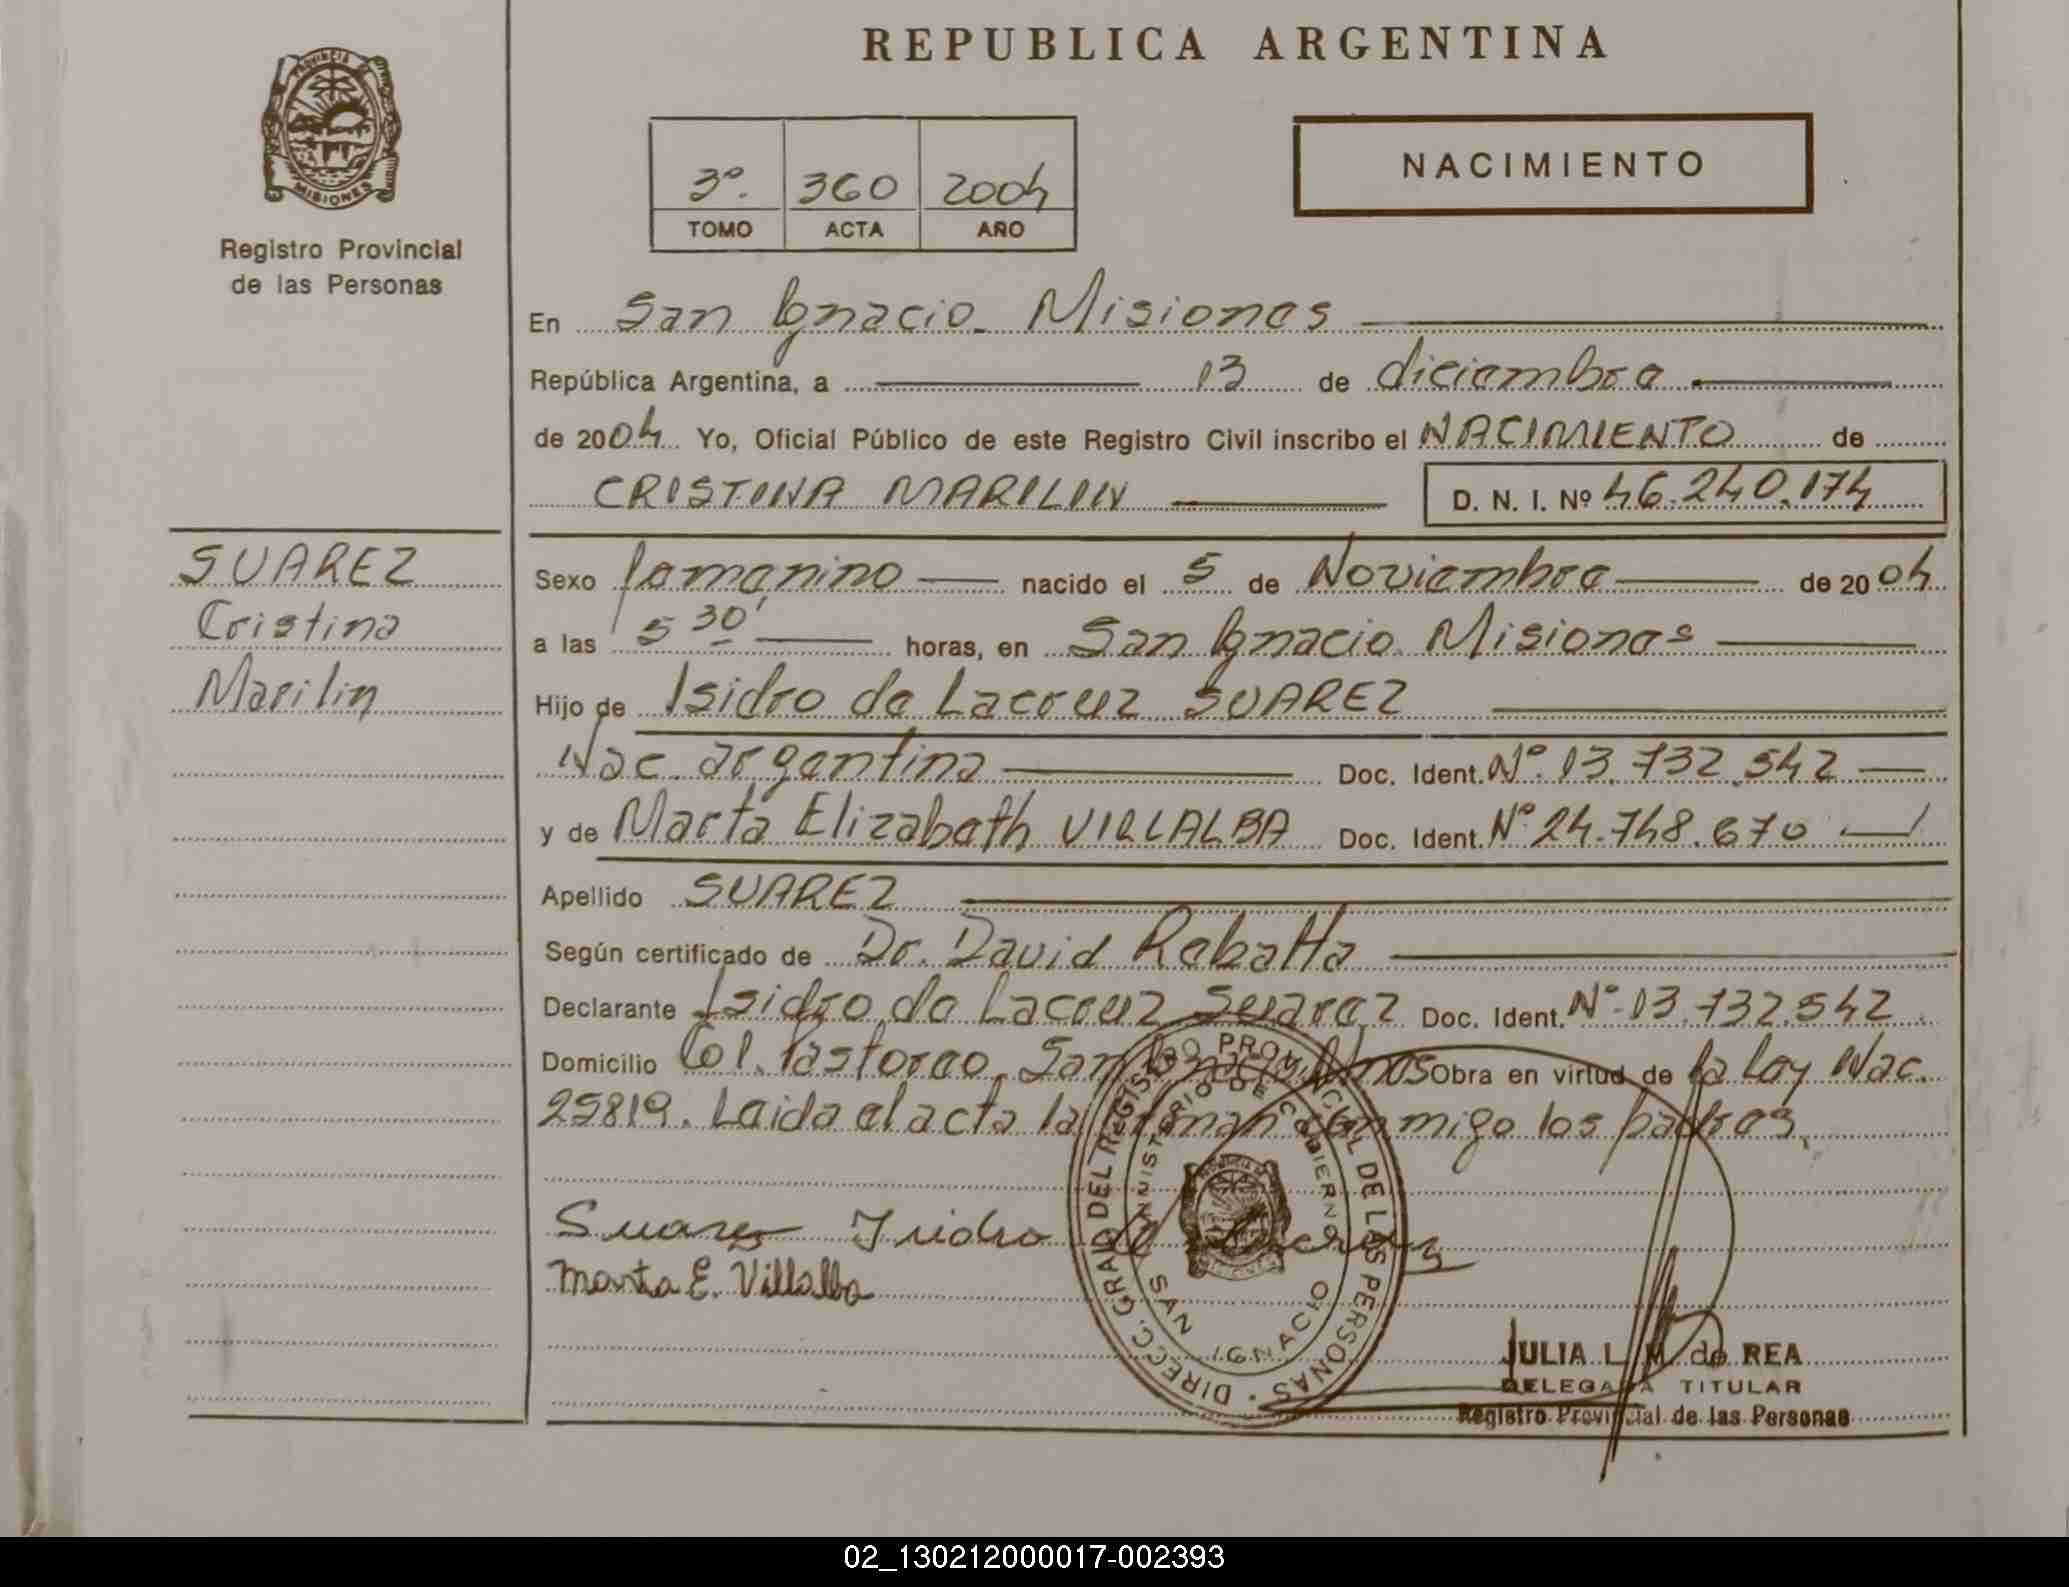 REPUBLICA ARGENTINA
PROVINCIA DE
MISIONES
Registro Provincial
de las Personas
3º. 360 2004
TOMO ACTA AÑO
NACIMIENTO
En San Ignacio Misiones
República Argentina, a 13 de diciembre
de 2004 Yo, Oficial Público de este Registro Civil inscribo el NACIMIENTO de
CRISTINA MARILIN D. N. I. Nº 46.240.174
SUAREZ
Cristina
Marilin
Sexo femenino nacido el 5 de Noviembre de 2004
a las 5 30' horas, en San Ignacio Misiones
Hijo de Isidro de Lacruz SUAREZ
Nac. argentina Doc. Ident. Nº. 13.732.542
y de Marta Elizabeth VILLALBA Doc. Ident. Nº 24.748.670
Apellido SUAREZ
Según certificado de Dr. David Rebatta
Declarante Isidro de Lacruz Suarez Doc. Ident. Nº 13.732.542
Domicilio Col. Pastoreo. San Ignacio. Mnes Obra en virtud de la Ley Nac.
25819. Leida el acta la firman conmigo los padres.
Suarez Isidro de lacruz
Marta E. Villalba
DIRECC. GRAL. DEL REGISTRO PROVINCIAL DE LAS PERSONAS
MINISTERIO DE GOBIERNO
SAN IGNACIO
JULIA L. M. de REA
DELEGADA TITULAR
Registro Provincial de las Personas
02_130212000017-002393